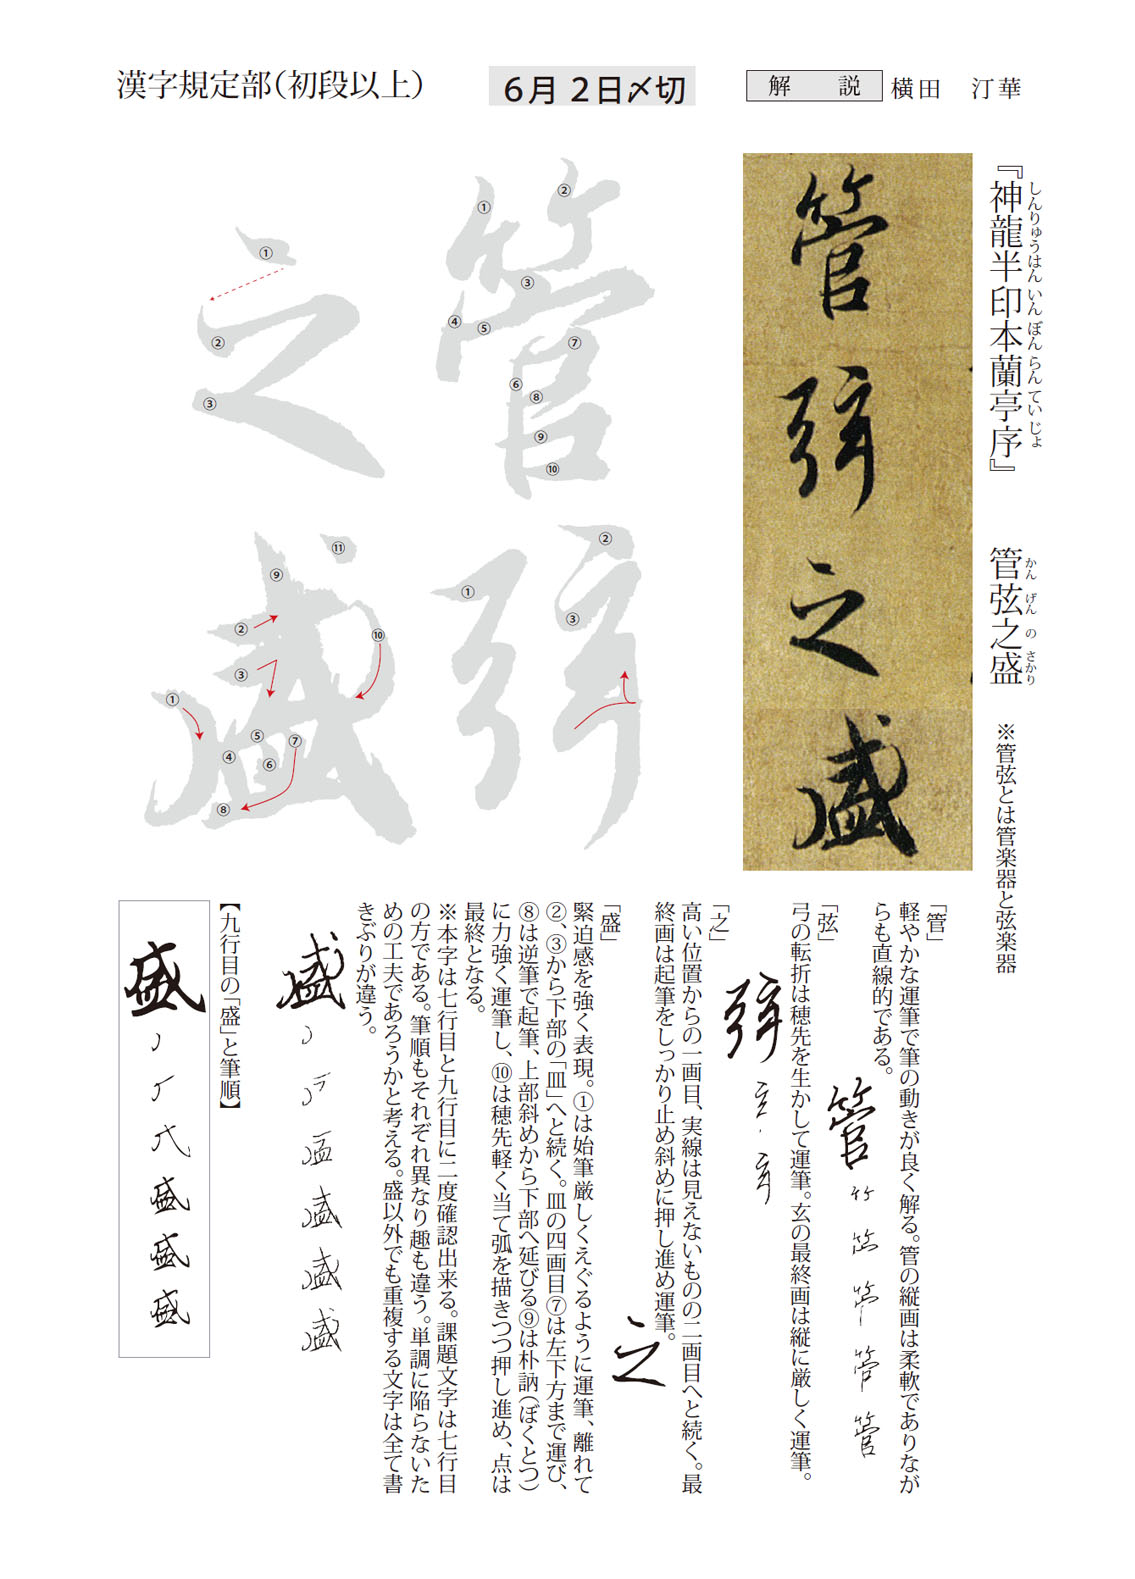 漢字規定部（初段以上）
６月２日〆切
解説
横田　汀華
『神龍半印本蘭亭序』　管弦之盛　※管弦とは管楽器と弦楽器
しんりゅうはんいんぼんらんていじょ　かんげんのさかり
管弦之盛
管
①②③④⑤⑥⑦⑧⑨⑩
弦
①②③
之
①②③
盛
①②③④⑤⑥⑦⑧⑨⑩⑪
「管」
軽やかな運筆で筆の動きが良く解る。管の縦画は柔軟でありなが
らも直線的である。
管
「弦」
弓の転折は穂先を生かして運筆。玄の最終画は縦に厳しく運筆。
弦
「之」
高い位置からの一画目、実線は見えないものの二画目へと続く。最
終画は起筆をしっかり止め斜めに押し進め運筆。
之
「盛」
緊迫感を強く表現。①は始筆厳しくえぐるように運筆、離れて
②、③から下部の「皿」へと続く。皿の四画目⑦は左下方まで運び、
⑧は逆筆で起筆、上部斜めから下部へ延びる⑨は朴訥（ぼくとつ）
に力強く運筆し、⑩は穂先軽く当て弧を描きつつ押し進め、点は
最終となる。
※本字は七行目と九行目に二度確認出来る。課題文字は七行目
の方である。筆順もそれぞれ異なり趣も違う。単調に陥らないた
めの工夫であろうかと考える。盛以外でも重複する文字は全て書
きぶりが違う。
盛
【九行目の「盛」と筆順】
盛